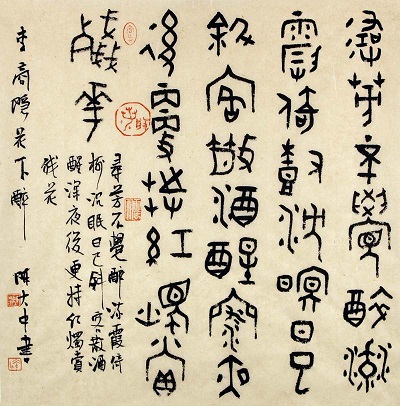 尋芳不覺醉流
霞倚樹沈眠日已
斜客散酒醒深夜
後更持紅燭賞
殘花
尋芳不覺醉流霞倚
樹沉眠日已斜客散酒
醒深夜後更持紅燭賞
殘花
李商隱花下醉
陳大中書